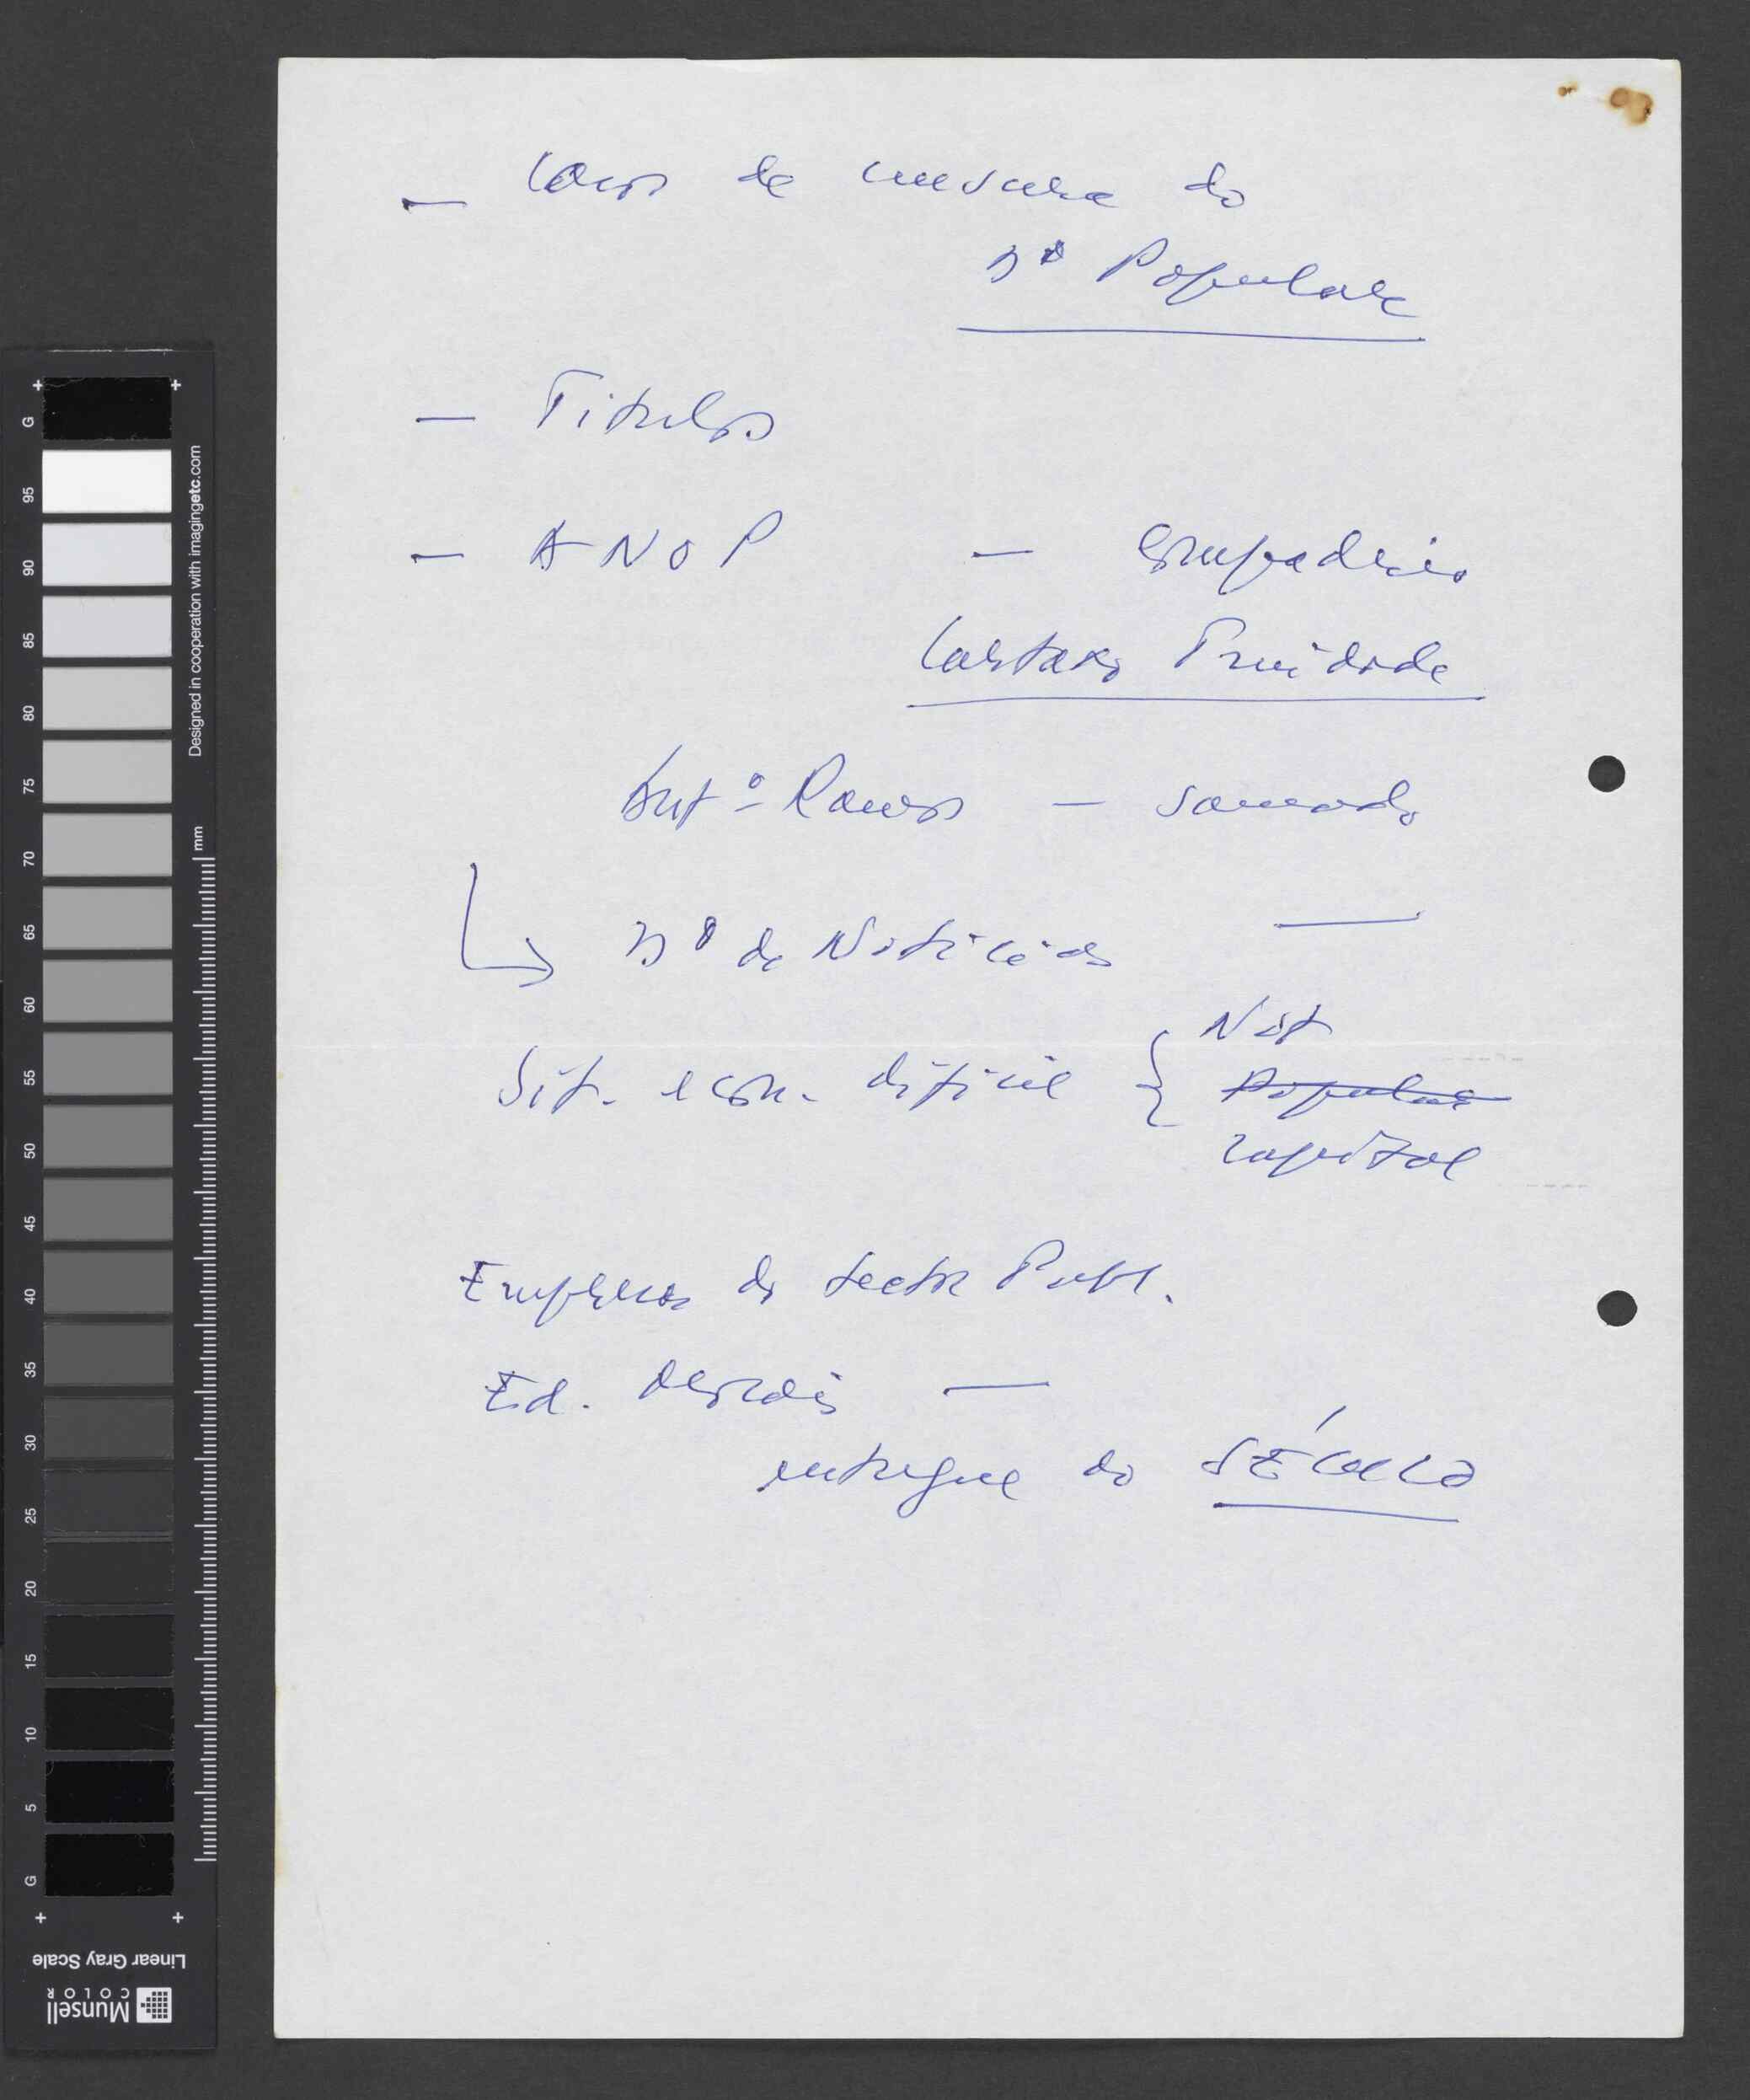 — Casos de censura do
Dº Popular
— Titulos
— ANOP — compadrio
Cartaxo Trindade
Antº Ramos — saneado
Dº de Noticias —
Sit. econ. dificil { Not
Popular
capital
Empresas do sector Publ.
Ed.
entregue do SÉCULO
G
95
90
85
80
75
70
65
60
55
50
45
40
35
30
25
20
15
10
5
G
Designed in cooperation with imagingetc.com
mm
Linear Gray Scale
Munsell
COLOR